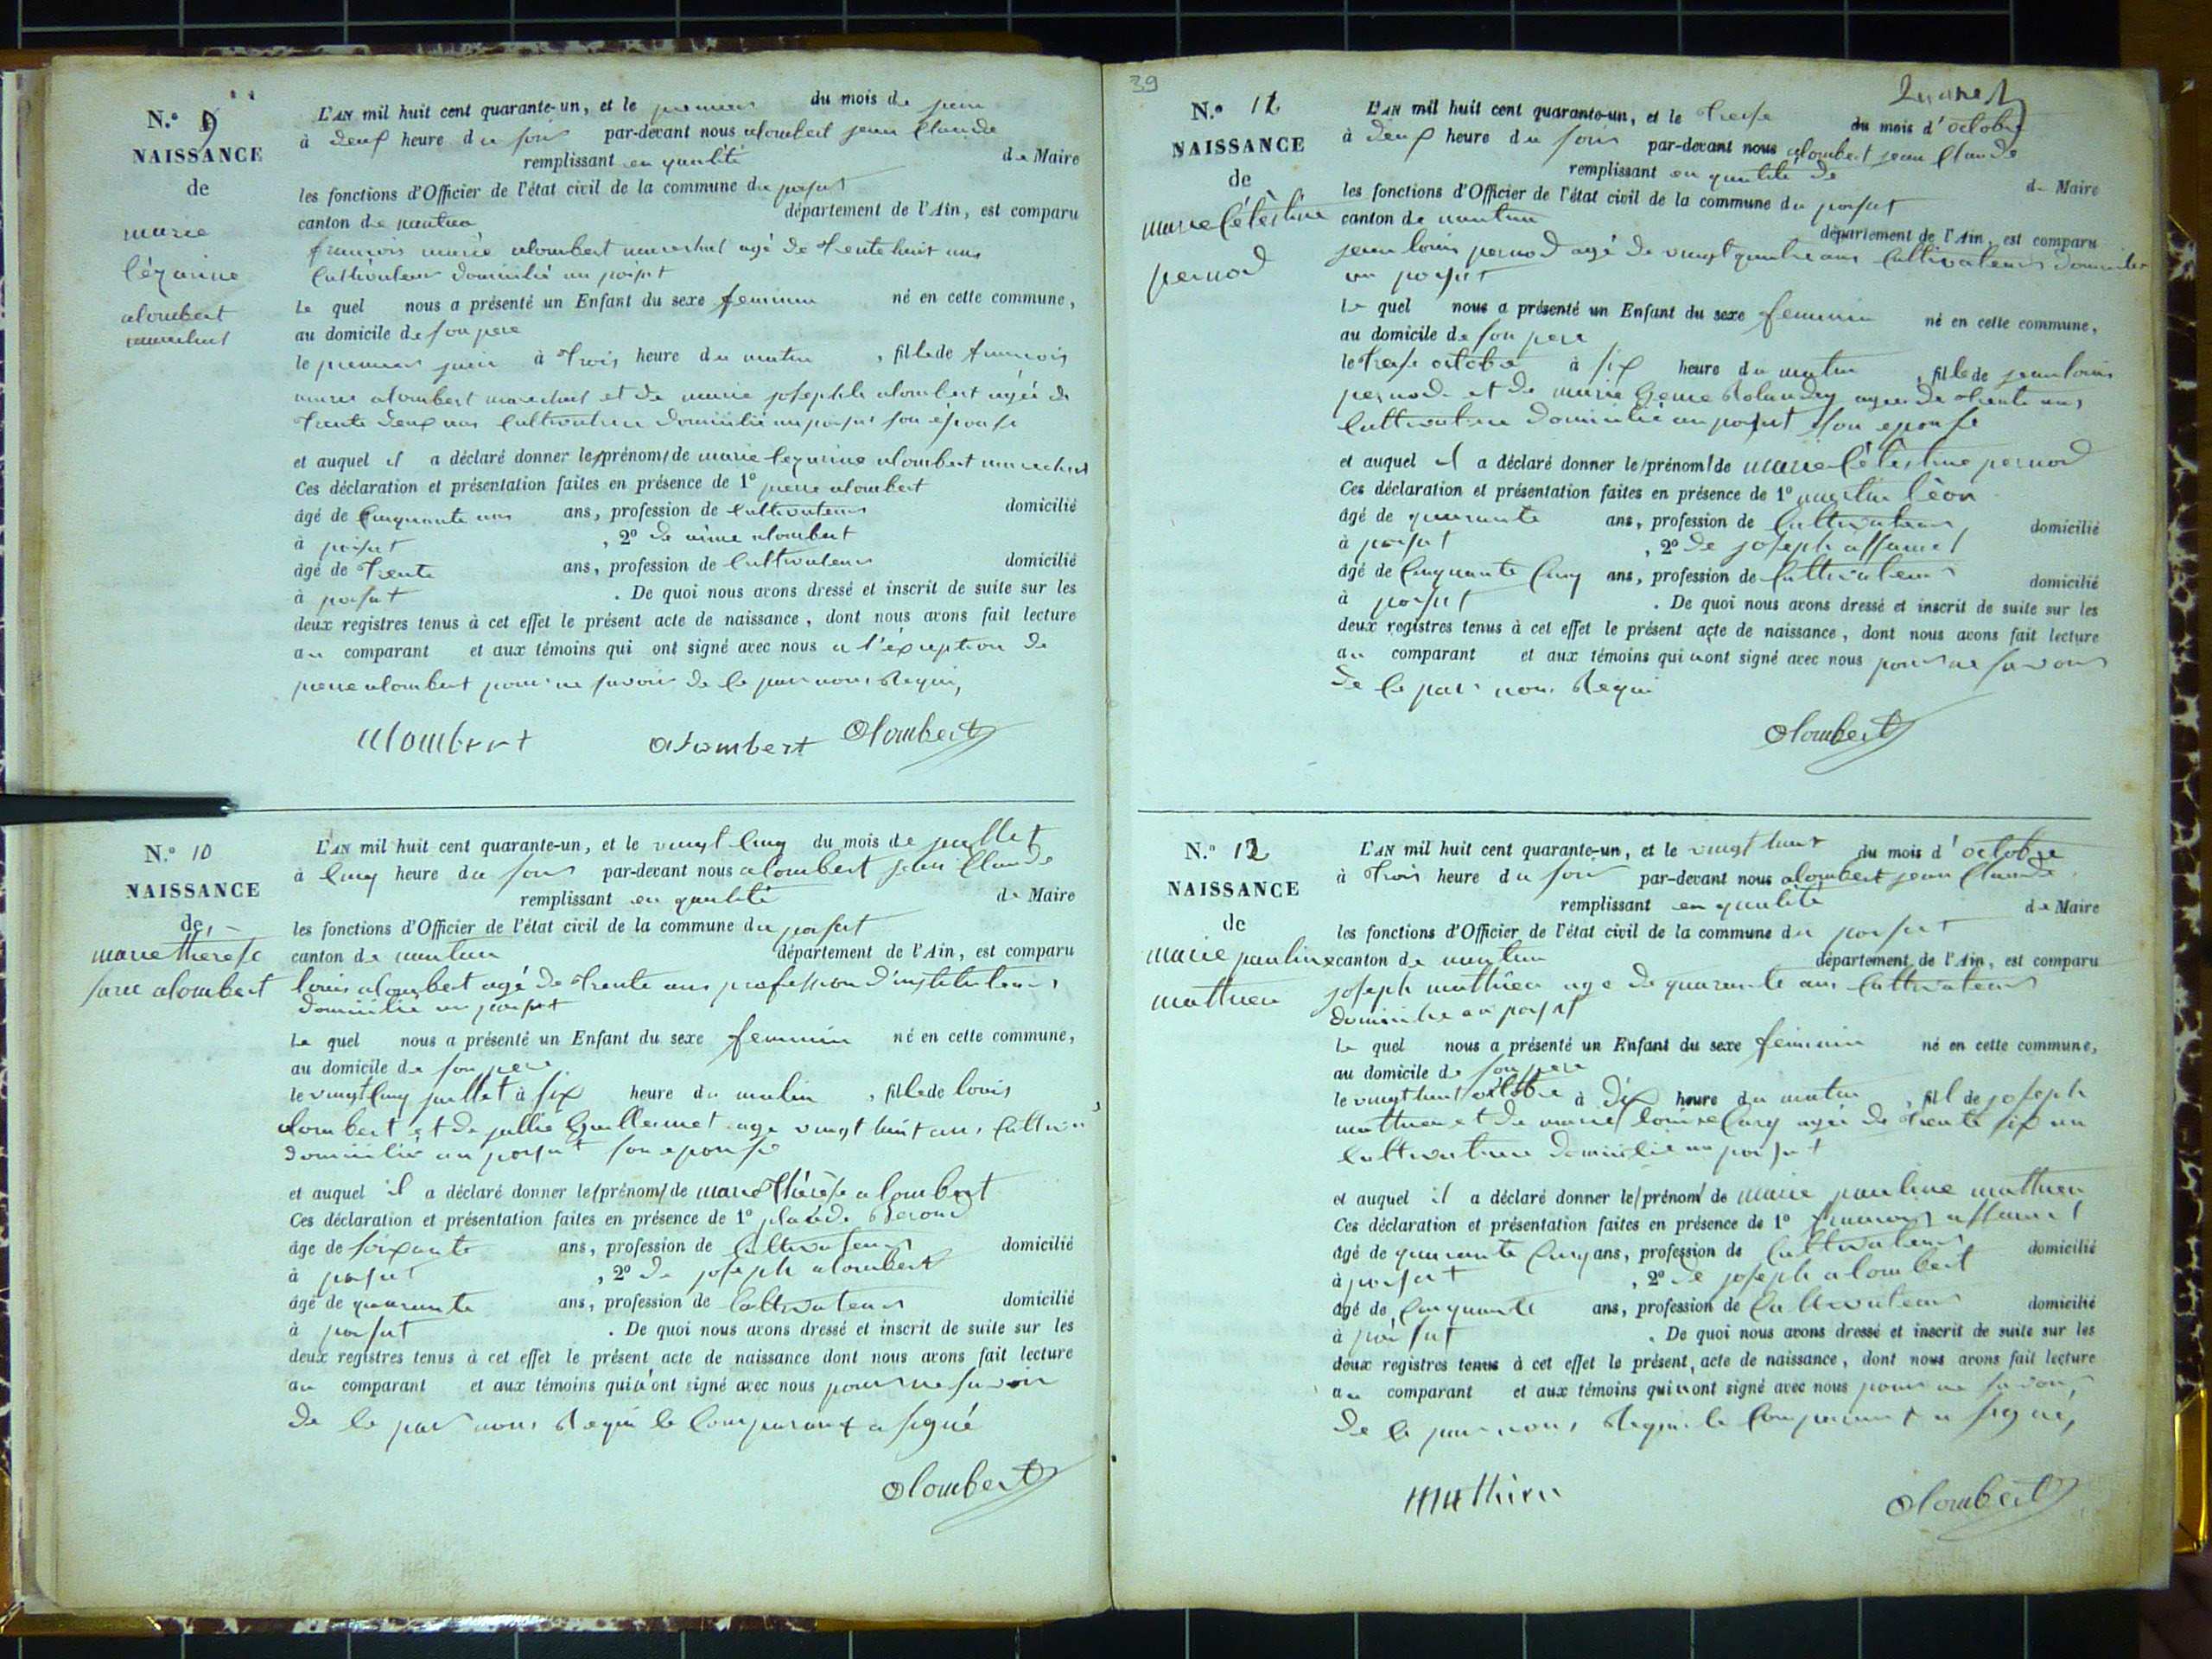 N.° 9
NAISSANCE
de
marie
lézarine
alombert
marechal
L'AN mil huit cent quarante-un, et le premier du mois de juin
à deux heure du soir par-devant nous alombert jean Claude
remplissant en qualité de Maire
les fonctions d'Officier de l'état civil de la commune du poisat
canton de nantua département de l'Ain, est comparu
francois marie alombert marechal agé de trente huit ans
Cultivateur domicilié au poisat
Le quel nous a présenté un Enfant du sexe feminin né en cette commune,
au domicile de son pere
le premier juin à trois heure du matin, fille de francois
marie alombert marechal et de marie josephte alombert agée de
trente deux ans Cultivatrice domicilié au poisat son épouse
et auquel il a déclaré donner le prénom de marie lezarine alombert marechal
Ces déclaration et présentation faites en présence de 1° pierre alombert
âgé de Cinquante ans ans, profession de Cultivateur domicilié
à poisat, 2° de aimé alombert
âgé de trente ans, profession de Cultivateur domicilié
à poisat. De quoi nous avons dressé et inscrit de suite sur les
deux registres tenus à cet effet le présent acte de naissance, dont nous avons fait lecture
au comparant et aux témoins qui ont signé avec nous a l'éxception de
pierre alombert pour ne savoir de le par nous Requi,
alombert alombert Alombert
N.° 10
NAISSANCE
de
marie therese
alombert
L'AN mil huit cent quarante-un, et le vingt Cinq du mois de juillet
à Cinq heure du soir par-devant nous alombert jean Claude
remplissant en qualité de Maire
les fonctions d'Officier de l'état civil de la commune du poisat
canton de nantua département de l'Ain, est comparu
louis alombert agé de trente ans profession d'instituteur
domicilié au poisat
Le quel nous a présenté un Enfant du sexe feminin né en cette commune,
au domicile de son pere
le vingt Cinq juillet à six heure du matin, fille de louis
alombert et de jullie Guillermet age vingt huit ans Cultiva
domicilié au poisat son epouse
et auquel il a déclaré donner le prénom de marie Thérèse alombert
Ces déclaration et présentation faites en présence de 1° placide
âgé de soixante ans, profession de Cultivateur domicilié
à poisat, 2° de joseph alombert
âgé de quarante ans, profession de Cultivateur domicilié
à poisat. De quoi nous avons dressé et inscrit de suite sur les
deux registres tenus à cet effet le présent acte de naissance dont nous avons fait lecture
au comparant et aux témoins qui n'ont signé avec nous pour ne savoir
de le par nous Requi le Comparant a signé
Alombert
39
N.° 11
NAISSANCE
de
marie Célèstine
pernod
L'AN mil huit cent quarante-un, et le treise du mois d'octobre
à deux heure du soir par-devant nous alombert jean Claude
remplissant en qualité de de Maire
les fonctions d'Officier de l'état civil de la commune du poisat
canton de nantua département de l'Ain, est comparu
jean louis pernod agé de vingt quatre ans Cultivateur domicilié
au poisat
Le quel nous a présenté un Enfant du sexe feminin né en cette commune,
au domicile de son pere
le treise octobre à six heure du matin, fille de jean louis
pernod et de marie agée de trente ans
Cultivatrice domicilié au poisat son epouse
et auquel il a déclaré donner le prénom de marie Célèstine pernod
Ces déclaration et présentation faites en présence de 1° léon
âgé de quarante ans, profession de Cultivateur domicilié
à poisat, 2° de joseph affamel
âgé de Cinquante Cinq ans, profession de Cultivateur domicilié
à poisat. De quoi nous avons dressé et inscrit de suite sur les
deux registres tenus à cet effet le présent acte de naissance, dont nous avons fait lecture
au comparant et aux témoins qui n'ont signé avec nous pour ne savoir
de le par nous Requi
Alombert
N.° 12
NAISSANCE
de
marie pauline
mathieu
L'AN mil huit cent quarante-un, et le vingt huit du mois d'octobre
à trois heure du soir par-devant nous alombert jean Claude
remplissant en qualité de Maire
les fonctions d'Officier de l'état civil de la commune du poisat
canton de nantua département de l'Ain, est comparu
joseph mathieu age de quarante ans Cultivateur
domicilie au poisat
Le quel nous a présenté un Enfant du sexe féminin né en cette commune,
au domicile de son pere
le vingt huit octobre à dix heure du matin, fil de joseph
mathieu et de marie louise agée de trente six an
Cultivatrice domicilié au poisat
et auquel il a déclaré donner le prénom de marie pauline mathieu
Ces déclaration et présentation faites en présence de 1° francois affamel
âgé de quarante Cinq ans, profession de Cultivateur domicilié
à poisat, 2° de joseph alombert
âgé de Cinquante ans, profession de Cultivateur domicilié
à poisat. De quoi nous avons dressé et inscrit de suite sur les
deux registres tenus à cet effet le présent acte de naissance, dont nous avons fait lecture
au comparant et aux témoins qui n'ont signé avec nous pour ne savoir
de le par nous Requi le Comparant a signé,
Mathieu Alombert